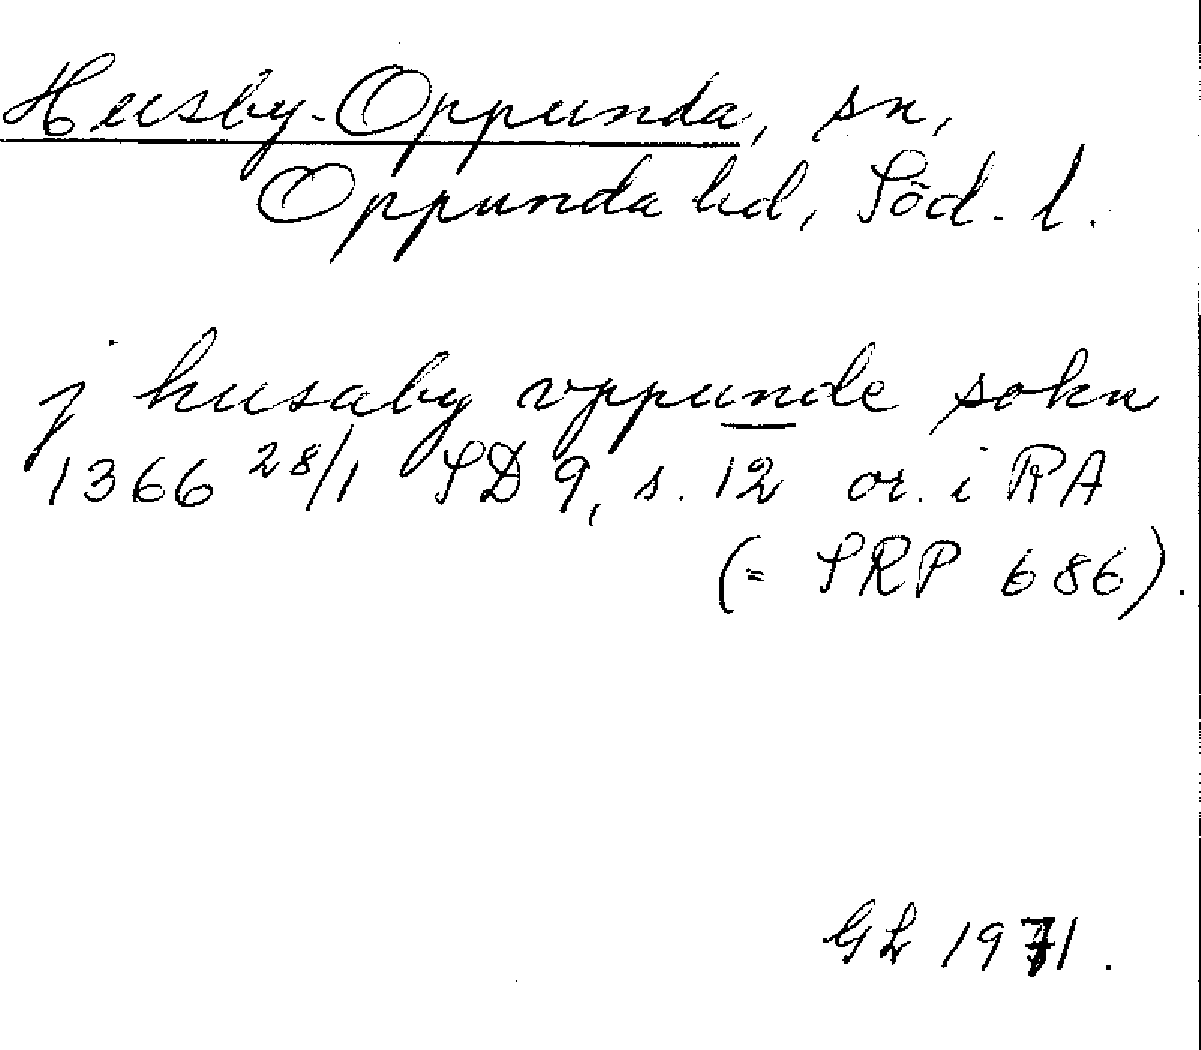 Husby-Oppunda, sn,
Oppunda hd, Söd. l.
j husaby vppunde sokn
1366 28/1 SD 9, s. 12 or. i RA
(= SRP 686).
GL 1971.